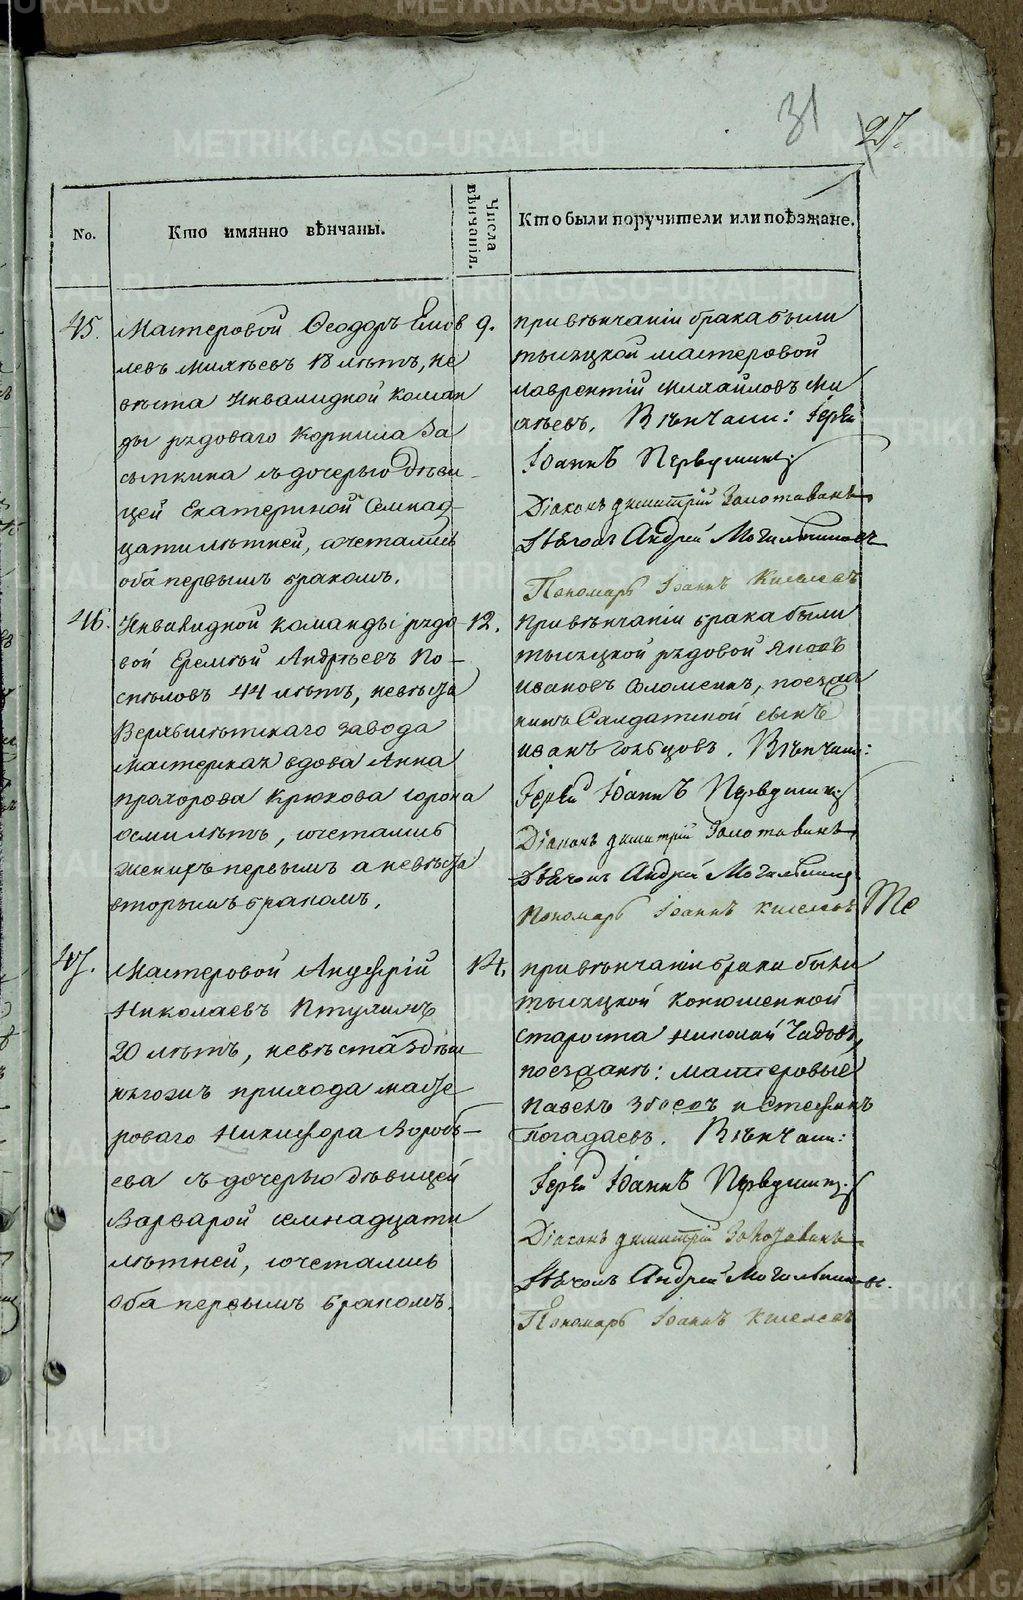 31
27.
No.
Кто имянно вѣнчаны.
Числа вѣнчанія.
Кто были поручители или поѣзжане.
45.
Мастеровой Ѳеодоръ
левъ 18 лѣтъ, не
вѣста Инвалидной коман
ды рядоваго Корнила За
сыпкина съ дочерью дѣви
цей Екатериной Семнад-
цатилѣтней, сочетались
оба первымъ бракомъ.
9.
при вѣнчаніи брака были
мастеровой
лаврентій михайловъ Ми
хѣевъ. Вѣнчали: Іерей
Іоаннъ Первушинъ
Діаконъ димитрій Золотавинъ
Дьячокъ Андрей Могильниковъ
Пономарь Іоаннъ Киселевъ
46.
Инвалидной команды рядо
вой Еремѣй Андрѣевъ По-
спѣловъ 44 лѣтъ, невѣста
завода
мастерская вдова Анна
прохорова Крюкова сорока
осми лѣтъ, сочетались
женихъ первымъ а невѣста
вторымъ бракомъ.
12.
При вѣнчаніи брака были
рядовой Яковъ
ивановъ Соломеинъ, поезжа
нинъ Салдатской сынъ
иванъ гольцовъ. Вѣнчали:
Іерей Іоаннъ Первушинъ
Діаконъ димитрій Золотавинъ
Дьячокъ Андрей Могильников
Пономарь Іоаннъ Киселевъ
47.
Мастеровой
Николаевъ
20 лѣтъ, невѣста здѣш
няго прихода масте
роваго Никифора Воробь-
ева съ дочерью дѣвицей
Варварой семнадцати
лѣтней, сочетались
оба первымъ бракомъ.
14.
при вѣнчаніи брака были
конюшенной
староста николай
поезжане: мастеровые
павелъ и Стефанъ
погадаевъ. Вѣнчали:
Іерей Іоаннъ Первушинъ
Діаконъ димитрій Золотавинъ
Дьячокъ Андрей Могильниковъ.
Пономарь Іоаннъ Киселевъ
METRIKI.GASO-URAL.RU